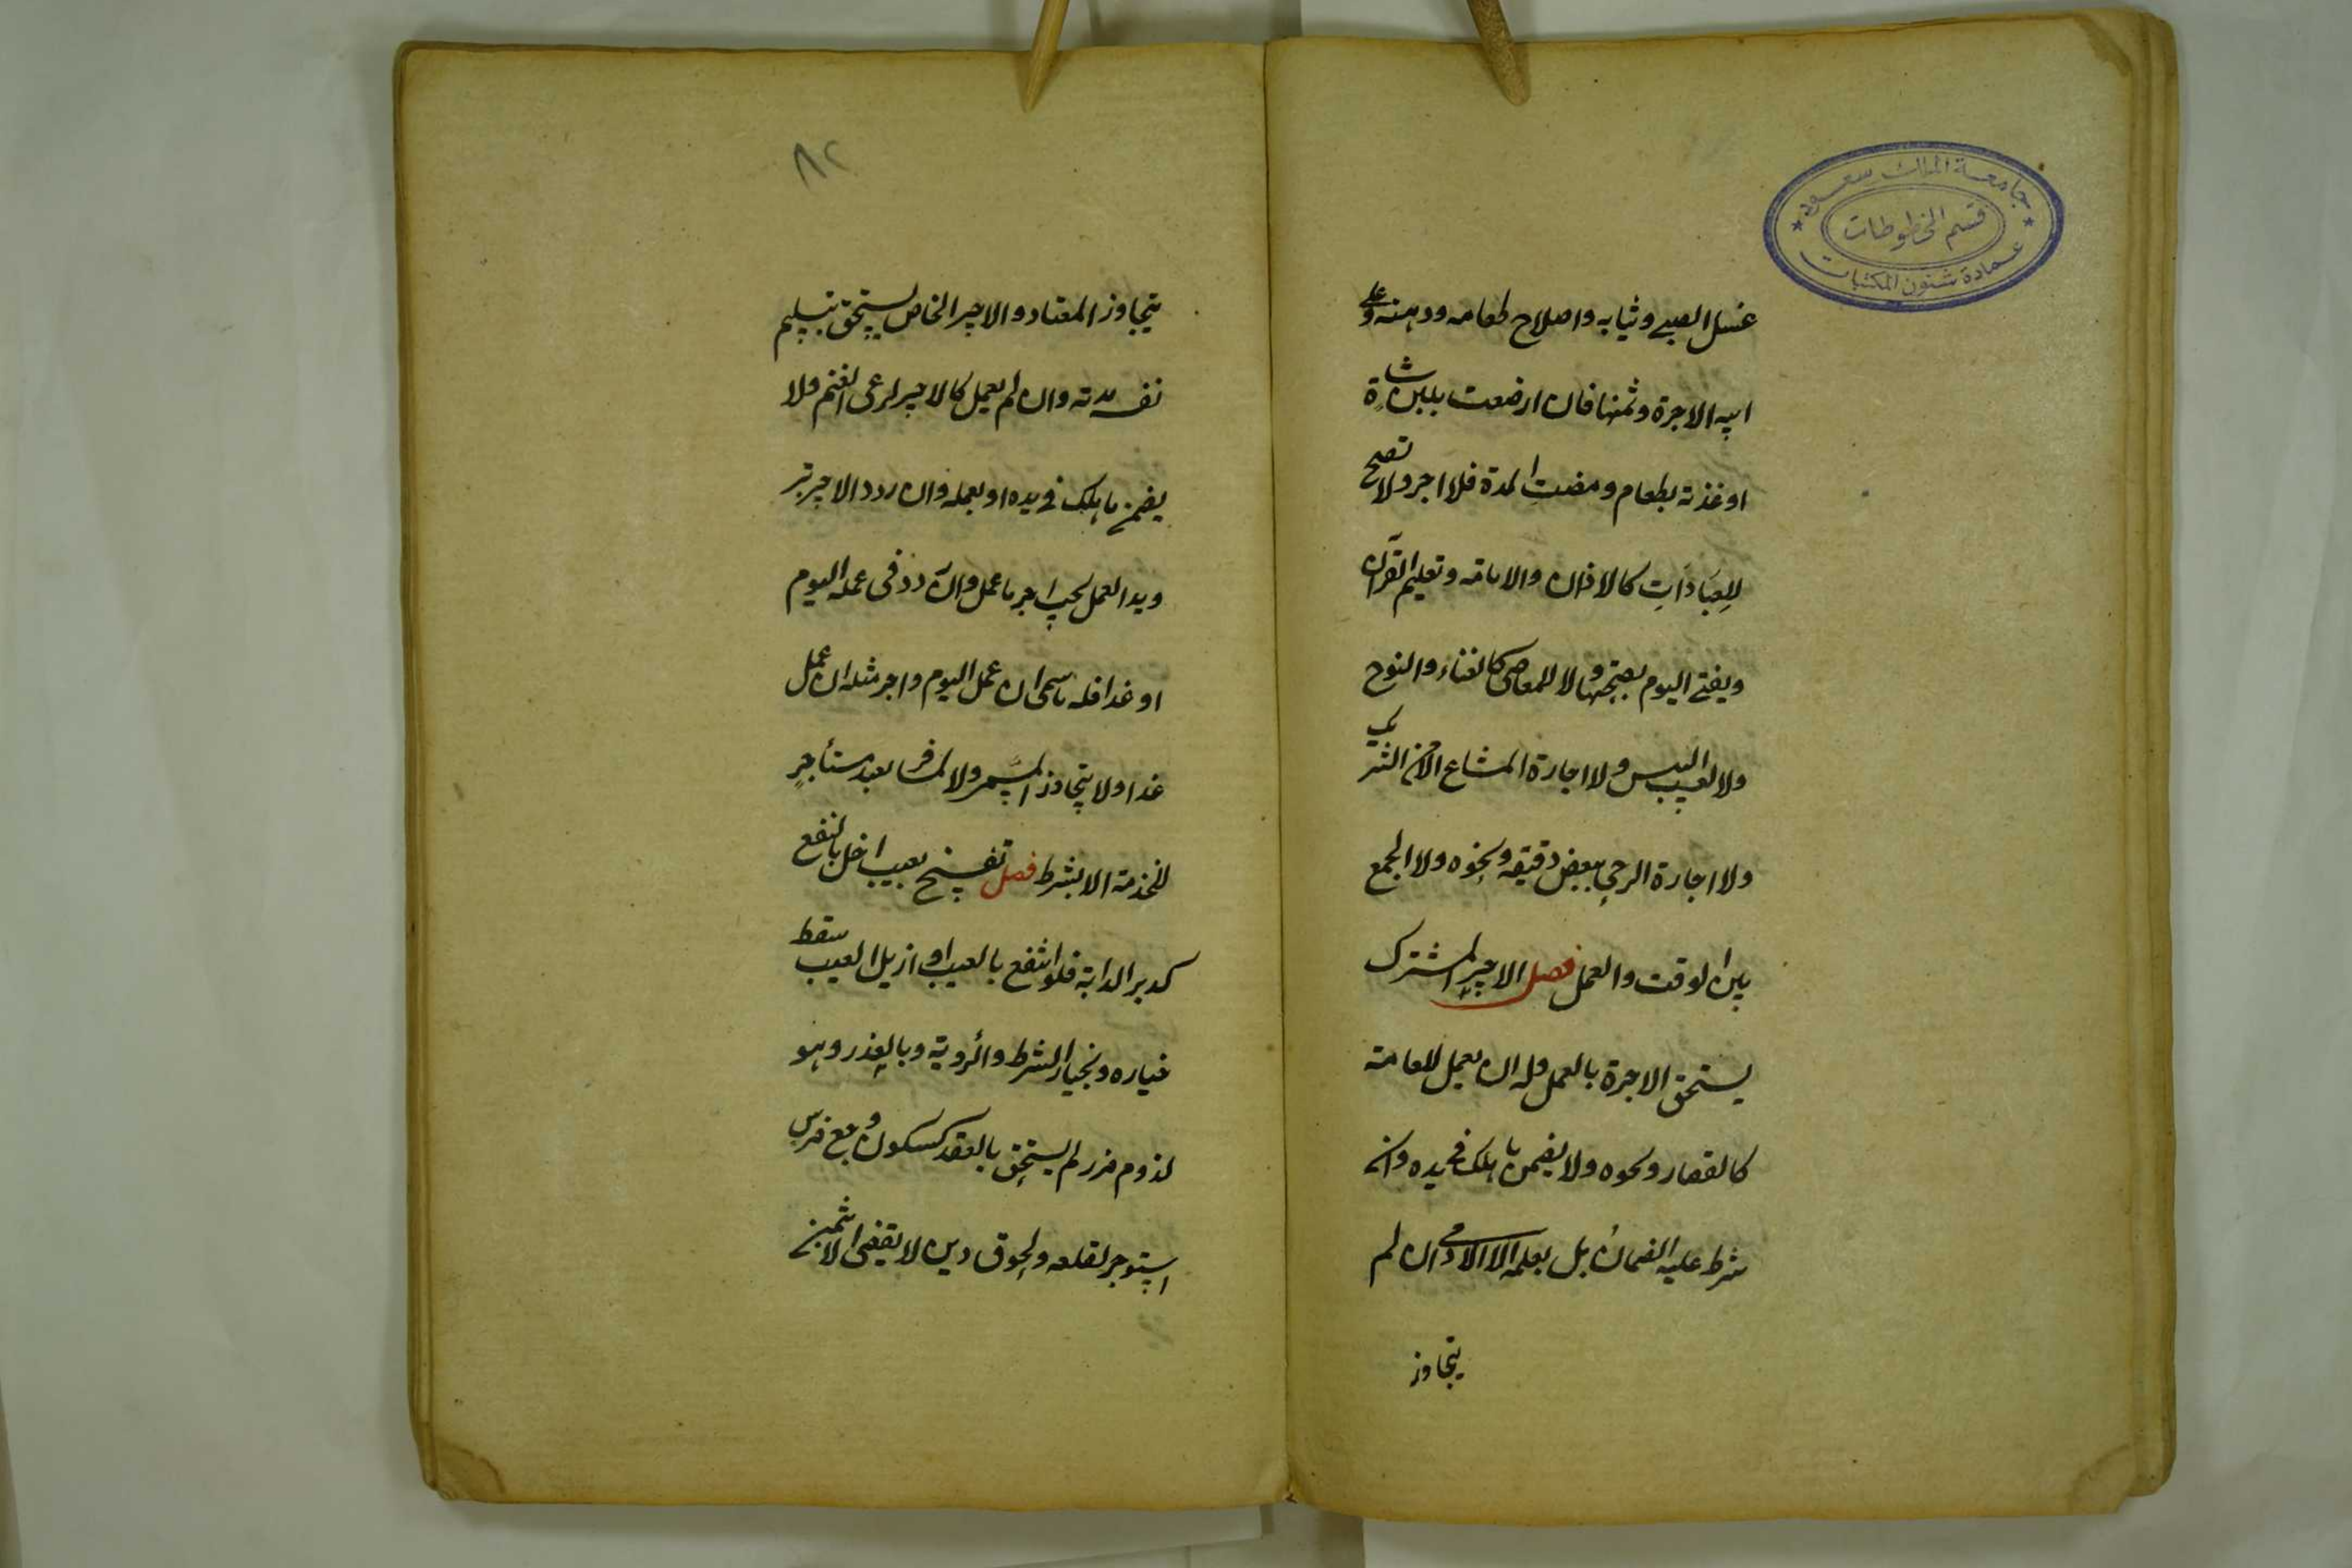 جامعة الملك سعود
قسم المخطوطات
عمادة شئون المكتبات
غسل الصبي وثيابه واصلاح طعامه ودهنه وعلى
ابيه الاجرة وثمنها فان ارضعت بلبن شاة
او غذته بطعام ومضت المدة فلا اجر ولا تصح
للعبادات كالاذان والامامة وتعليم القرآن
ويفتى اليوم بصحتها ولا للمعاصى كالغناء والنوح
ولا لعسب التيس ولا اجارة المشاع الا من الشريك
ولا اجارة الرحى ببعض دقيقه ونحوه ولا الجمع
بين الوقت والعمل فصل الاجير المشترك
يستحق الاجرة بالعمل وله ان يعمل للعامة
كالقصار ونحوه ولا يضمن ما هلك فى يده وان
شرط عليه الضمان بل بعمله الا الادمى ان لم
يتجاوز
٨٢
يتجاوز المعتاد والاجير الخاص يستحق بتسليم
نفسه مدته وان لم يعمل كالاجير لرعى الغنم ولا
يضمن ما هلك فى يده او بعمله وان ردد الاجير تر
ويد العمل يجب اجر ما عمل وان ردد فى عمله اليوم
او غدا فله ما سمى ان عمل اليوم واجر مثله ان عمل
غدا ولا يتجاوز المسمى ولا يسافر بعبد مستأجر
للخدمة الا بشرط فصل تفسخ بعيب اخل بالنفع
كدبر الدابة فلو انتفع بالعيب او ازيل العيب سقط
خياره وبخيار الشرط والرؤية وبالعذر وهو
لزوم ضرر لم يستحق بالعقد كسكون وجع ضرس
استوجر لقلعه ولحوق دين لا يقضى الا بثمن